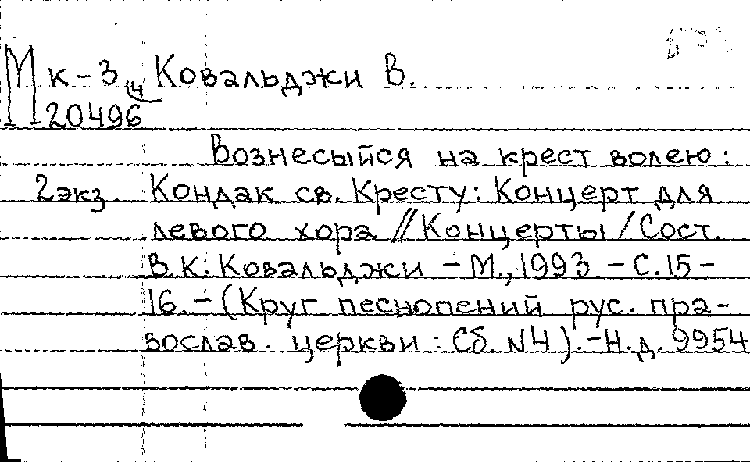 М к-3 Ковальджи В.
20496
Вознесыйся на крест волею:
2экз. Кондак св. Кресту: Концерт для
левого хора // Концерты / Сост.
В.К. Ковальджи – М., 1993 – С.15–
16. – (Круг песнопений рус. пра-
вослав. церкви: Сб. N4). – Н.д. 9954